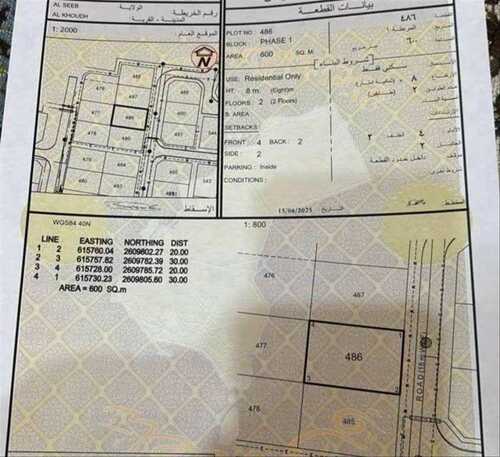 AL SEEB
AL KHOUDH
الولاية
رقم الخريطة
المدينة - القرية
1: 2000
الموقع العام:
N
بيانات القطعة
PLOT NO : 486
٤٨٦
BLOCK : PHASE 1
المرحلة ١
AREA : 600 SQ. M
٦٠٠
شروط البناء
USE: Residential Only
سكني فقط
HT: 8 m. (Eight)m
٨
FLOORS: 2 (2 Floors)
٢
B. AREA
SETBACKS:
FRONT : 4 BACK : 2
٤
٢
SIDE : 2
٢
PARKING : Inside
داخل حدود القطعة
CONDITIONS :
15/06/2025
التاريخ
الإسقاط
WGS84 40N
1: 800
LINE EASTING NORTHING DIST
1 2 615760.04 2609802.27 20.00
2 3 615757.82 2609782.39 30.00
3 4 615728.00 2609785.72 20.00
4 1 615730.23 2609805.60 30.00
AREA = 600 SQ.m
476
467
477
486
478
485
4
1
3
2
ROAD